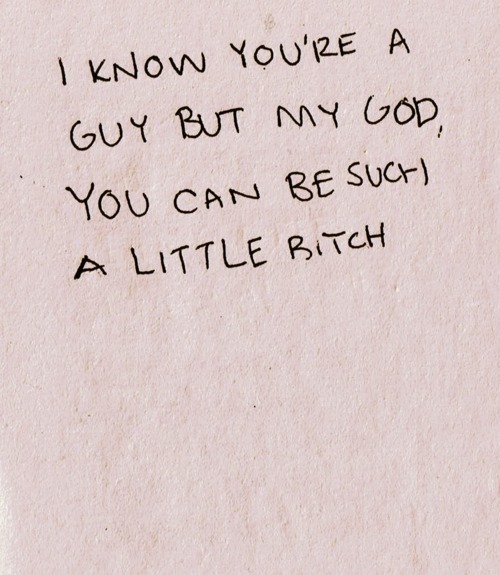 I KNOW YOU'RE A
GUY BUT MY GOD,
YOU CAN BE SUCH
A LITTLE BITCH